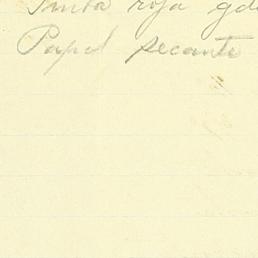 Tinta roja
Papel secante